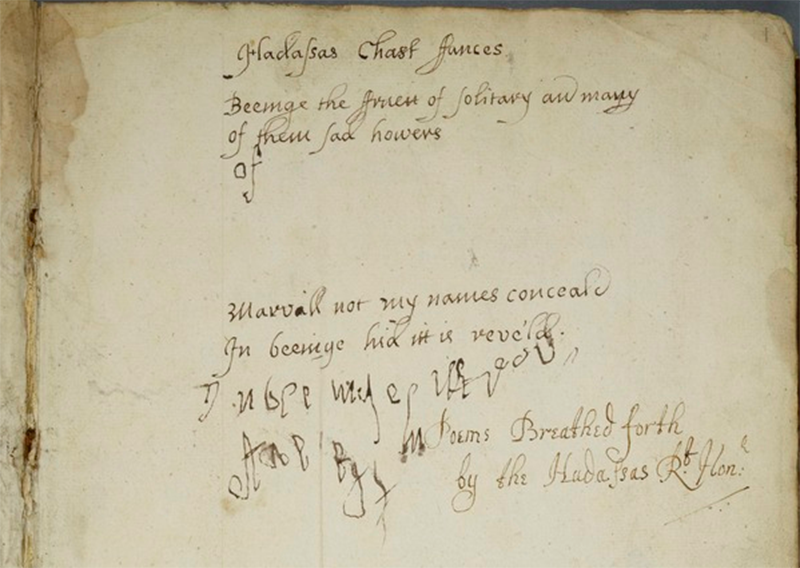 Hadaſsas Chast ffances
Beeinge the ffruett of solitary and many
of them sad howers
of
Marvall not my names conceald
In beeinge hid itt is reve'ld.
Poems Breathed forth
by the Hadaſsas Rt. Hon:e